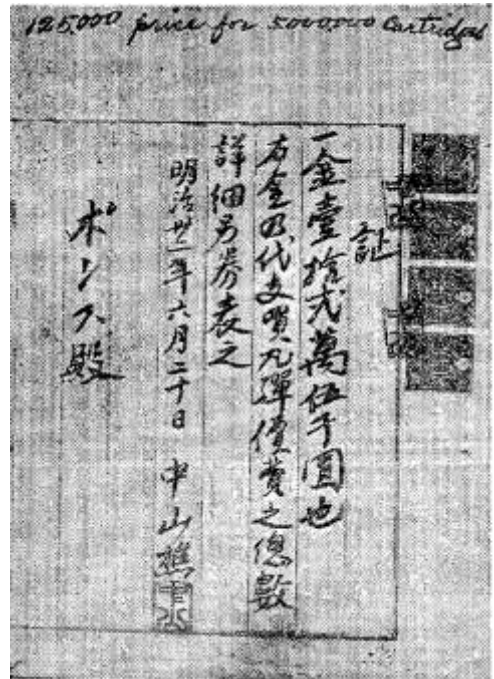 125,000 price for 5000,000 Cartridges
証
一金壹拾弐萬伍千圓也
右金乃代支買凡弾價費之總數
詳細另券表之
明治卅二年六月二十日 中山樵
ポンス殿